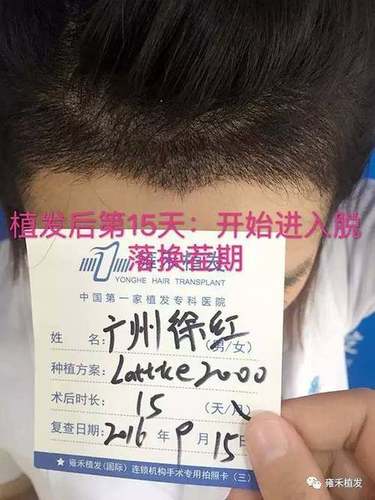 植发后第15天：开始进入脱
落换茬期
雍禾植发
YONGHE HAIR TRANSPLANT
中国第一家植发专科医院
姓 名：广州徐红(男/女)
种植方案：Lattice 2000
术后时长：15 (天/月)
复查日期：2016年9月15日
★ 雍禾植发(国际)连锁机构手术专用拍照卡(三)
雍禾植发